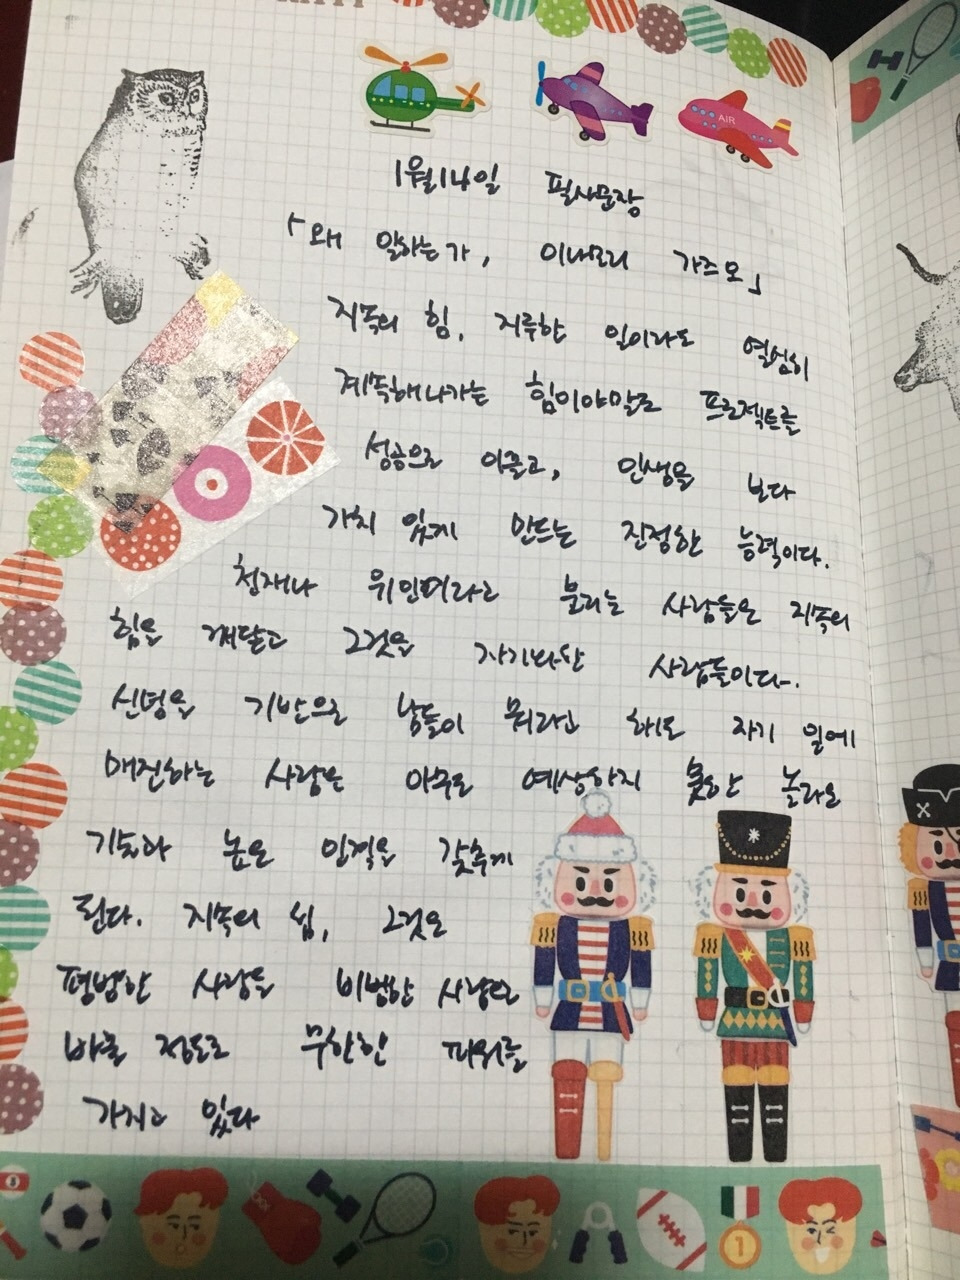 1월14일 필사문장
「왜 일하는가, 이나모리 가즈오」
지속의 힘. 지루한 일이라도 열심히
계속해나가는 힘이야말로 프로젝트를
성공으로 이끌고, 인생을 보다
가치 있게 만드는 진정한 능력이다.
천재나 위인이라고 불리는 사람들은 지속의
힘을 깨달고 그것을 자기화한 사람들이다.
신념을 기반으로 남들이 뭐라고 해도 자기 일에
매진하는 사람은 아무도 예상하지 못한 놀라운
기술과 높은 인격을 갖추게
된다. 지속의 힘, 그것은
평범한 사람을 비범한 사람으로
바꿀 정도로 무한한 파워를
가지고 있다
AIR
1